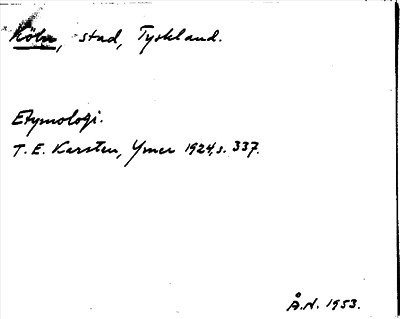 Köln, stad, Tyskland.
Etymologi.
T. E. Karsten, Ymer 1924, s. 337.
Å. N. 1953.